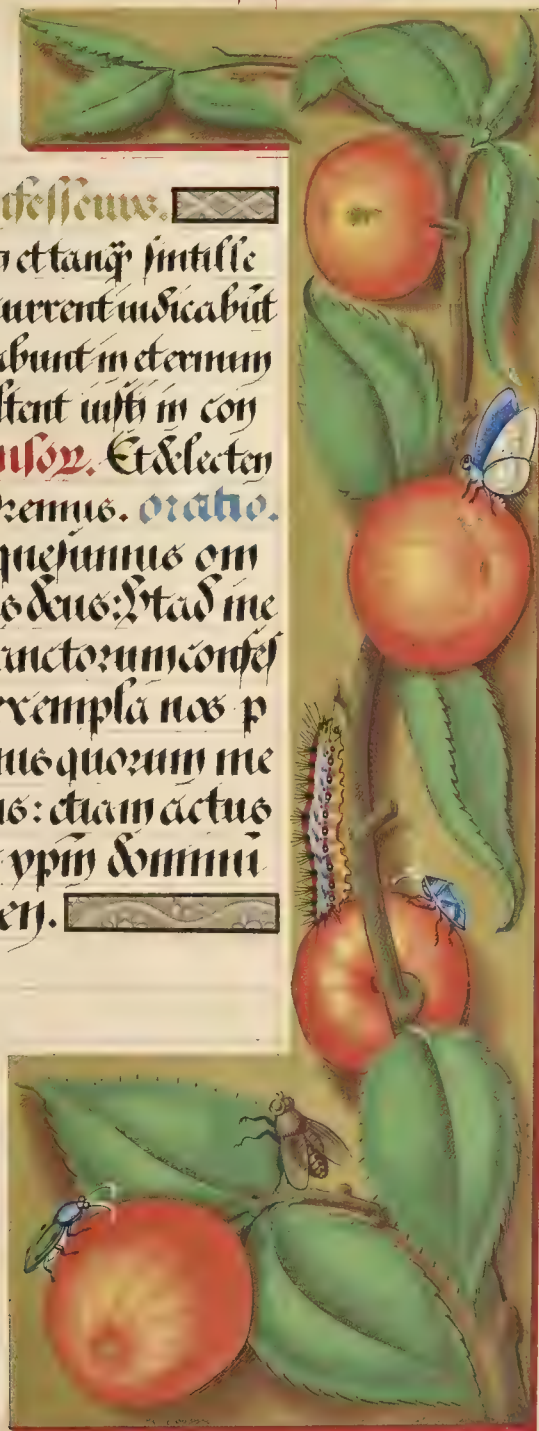 nfesseurs.
et tanq̃ sintille
current iudicabūt
abunt in eternum
ltent iusti in con
nsor. Et delecten
Oremus. oratio.
quesumus om
s deus: Vt ad me
anctorum confes
exempla nos p
tus quorum me
us: etiam actus
xp̄m dominū
en.